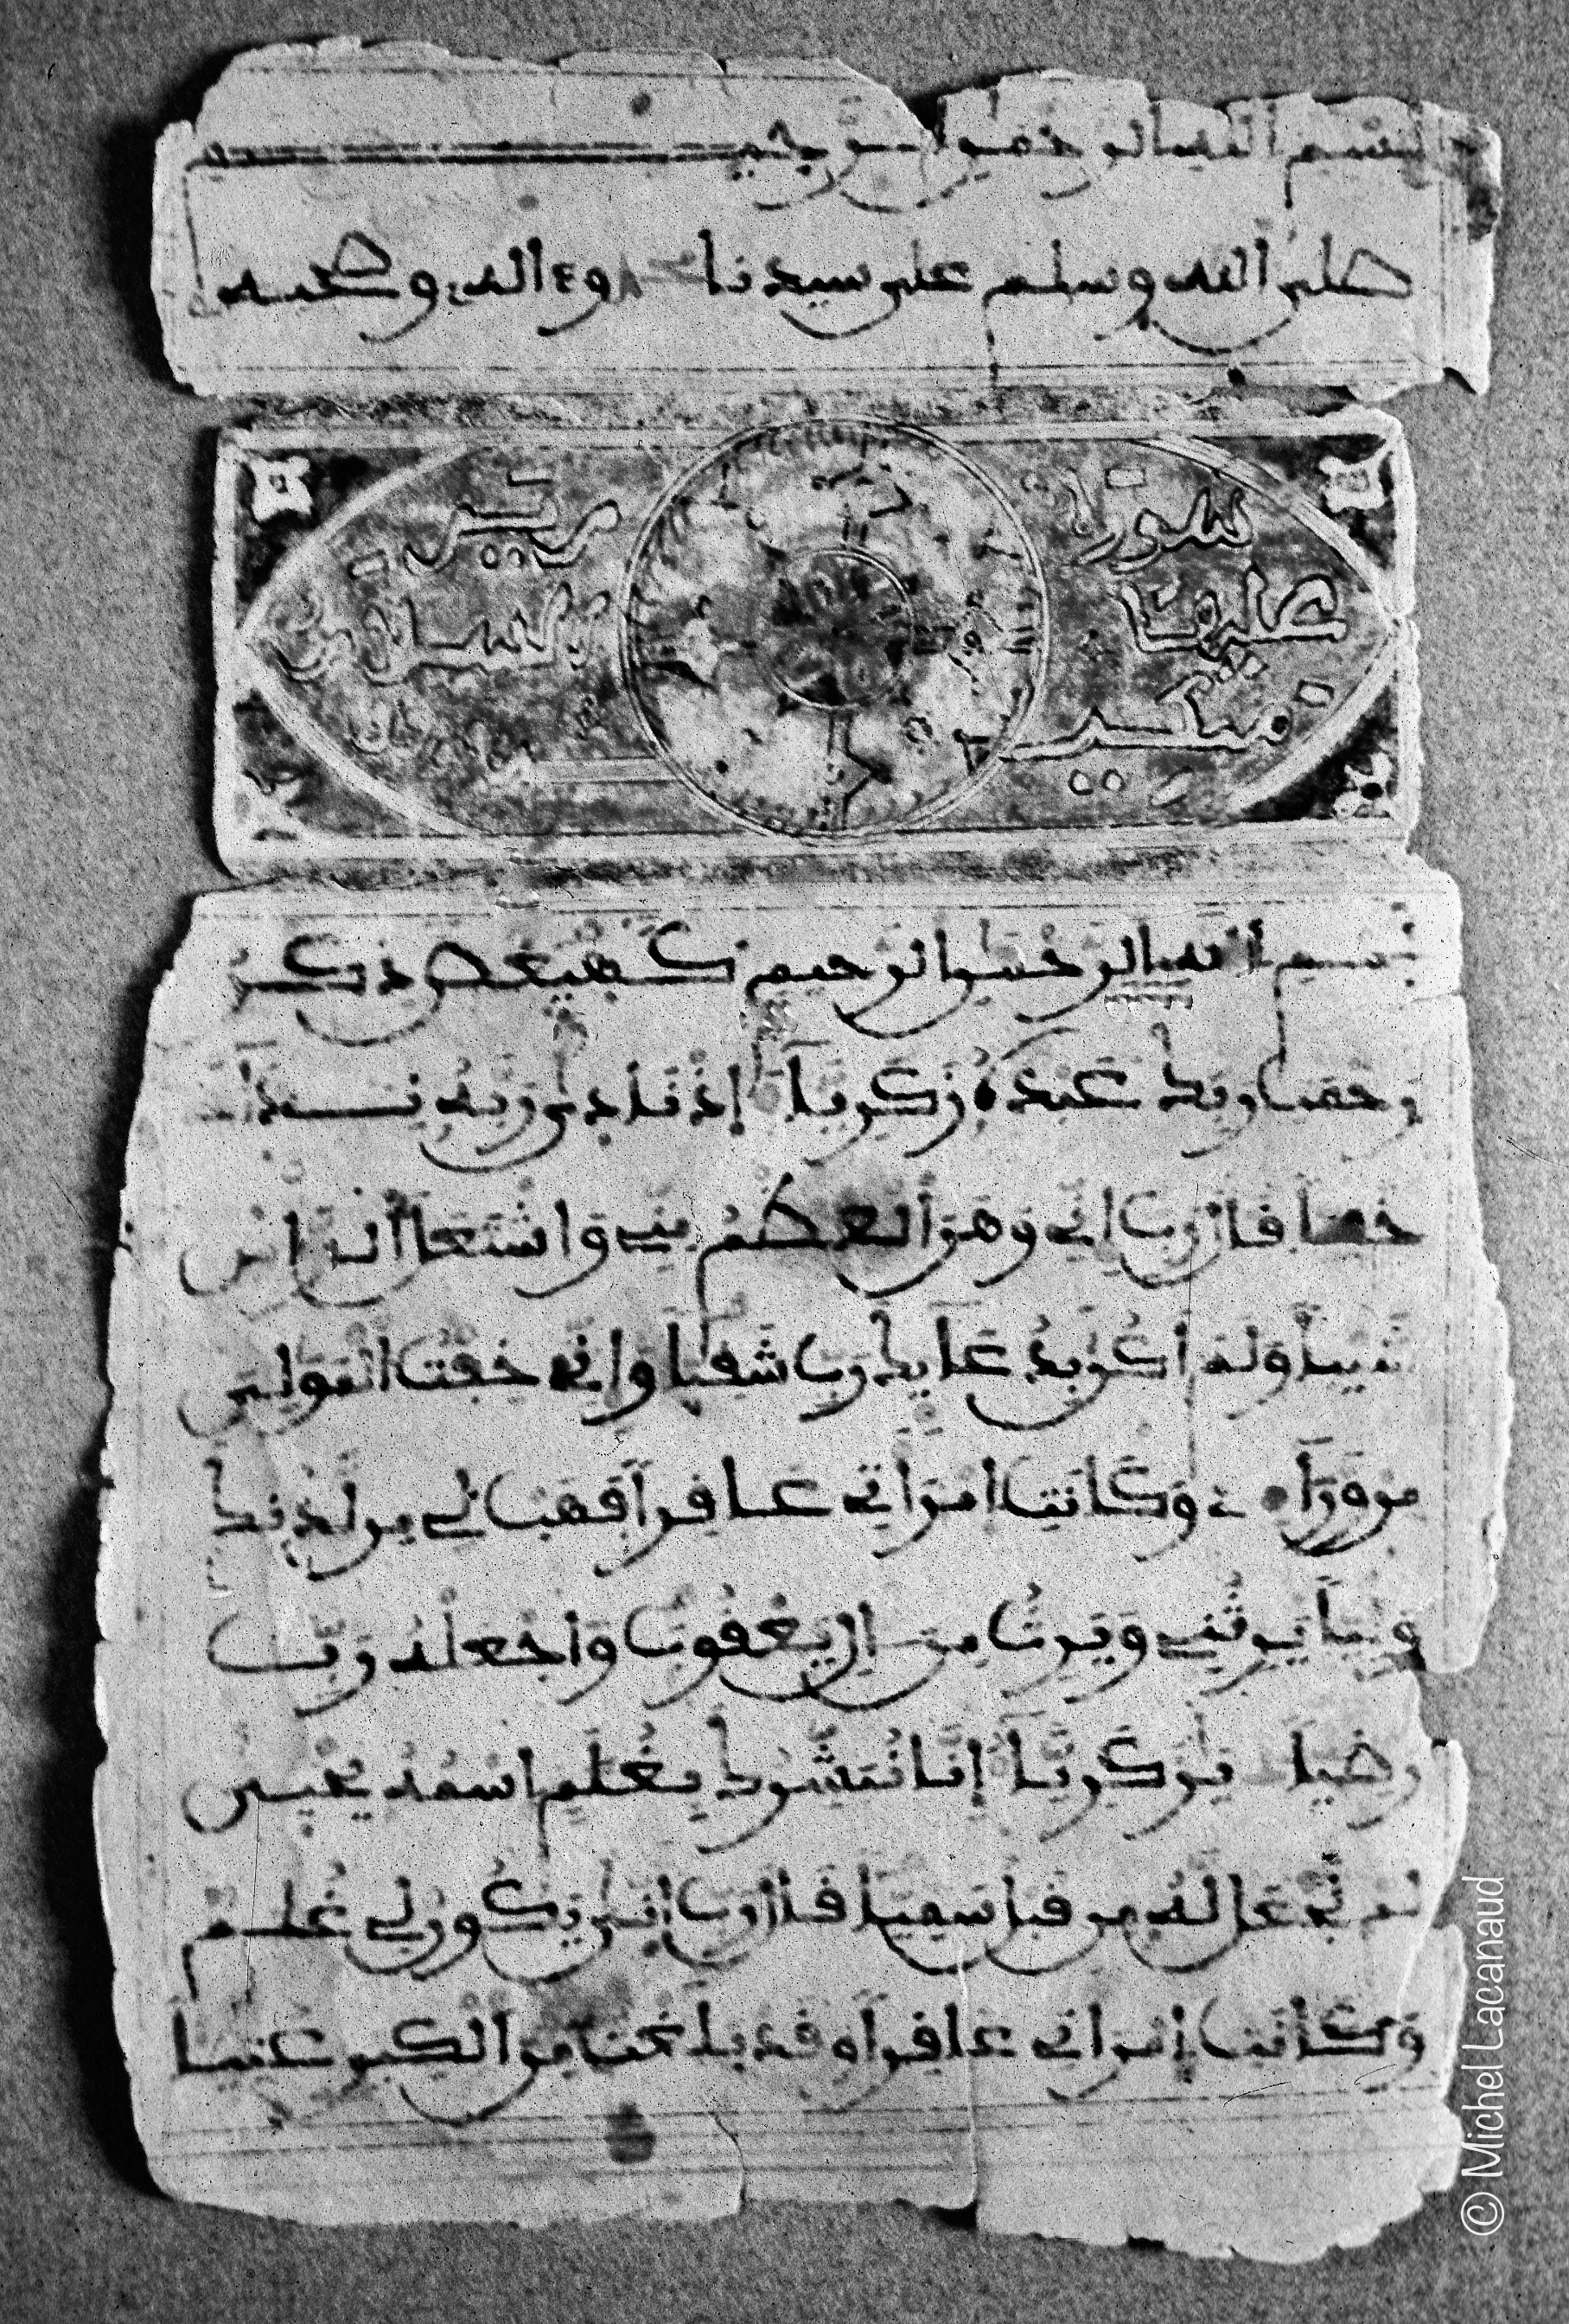 بسم الله الرحمن الرحيم
صلى الله وسلم على سيدنا محمد وءاله وصحبه
سورة مريم
مكية
بسم الله الرحمن الرحيم كهيعص ذكر
رحمت ربك عبده زكرياء اذ نادى ربه نداء
خفيا قال رب اني وهن العظم مني واشتعل الراس
شيبا ولم اكن بدعايك رب شقيا واني خفت الموالي
من وراءى وكانت امراتي عاقرا فهب لي من لدنك
وليا يرثني ويرث من ءال يعقوب واجعله رب
رضيا يزكرياء انا نبشرك بغلم اسمه يحيى
لم نجعل له من قبل سميا قال رب انى يكون لي غلم
وكانت امراتي عاقرا وقد بلغت من الكبر عتيا
© Michel Lacanaud